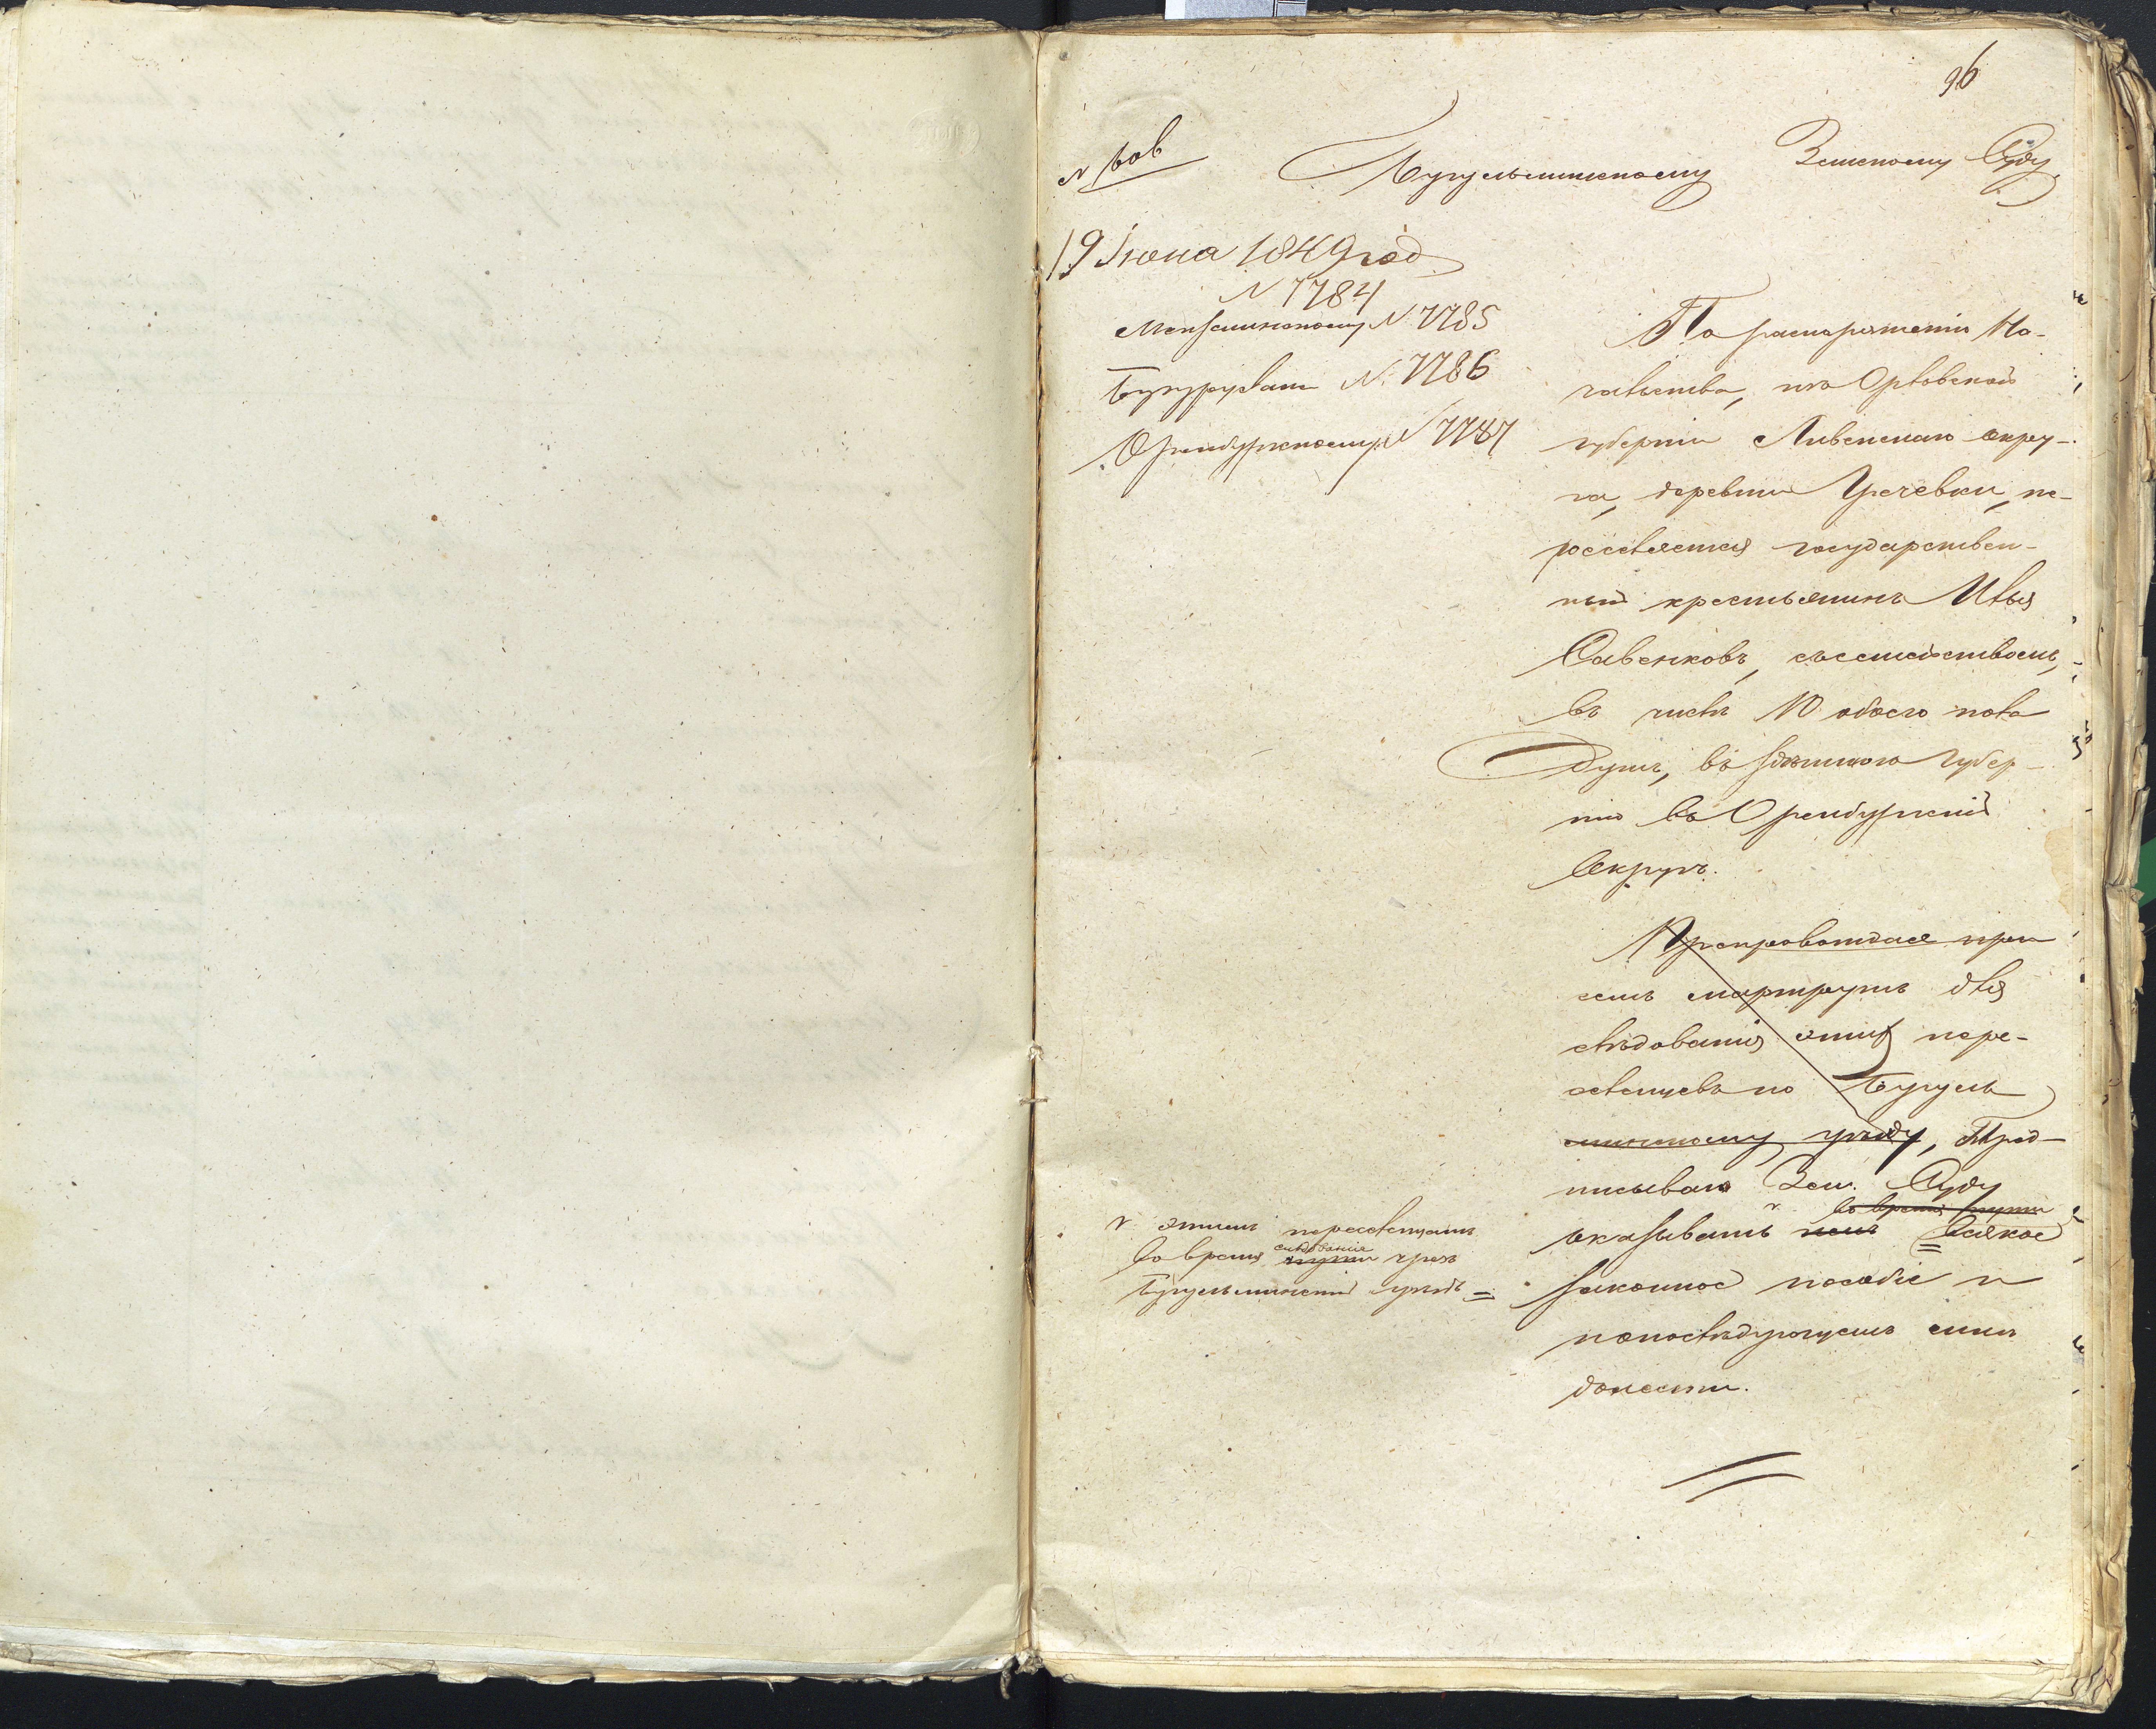 96
Бугульминскому Земскому Суду
19 Іюня 1849 год
N 7784
Мензелинскому N 7785
Бугурусланс N. 7786
Оренбургскому N 7787
По распоряженію На-
чальства, изъ Орловской
губерніи Ливенскаго окру-
га, деревни Гречевки, пе-
реселяется государствен-
ный крестьянинъ Илья
Савенковъ, съ семействомъ,
въ числѣ 10 обоего пола
душъ, въ здѣшнюю губер-
нію въ Оренбургскій
округъ.
Препровождая при
семъ маршрутъ для
слѣдованія этихъ пере-
селенцевъ по Бугуль
минскому уѣзду, Пред-
писываю Зем. Суду
во время пути
оказывать имъ всякое
законное пособіе и
по послѣдующему мнѣ
донести.
этимъ переселенцамъ
слѣдованія
во время пути чрезъ
Бугульминскій уѣздъ =